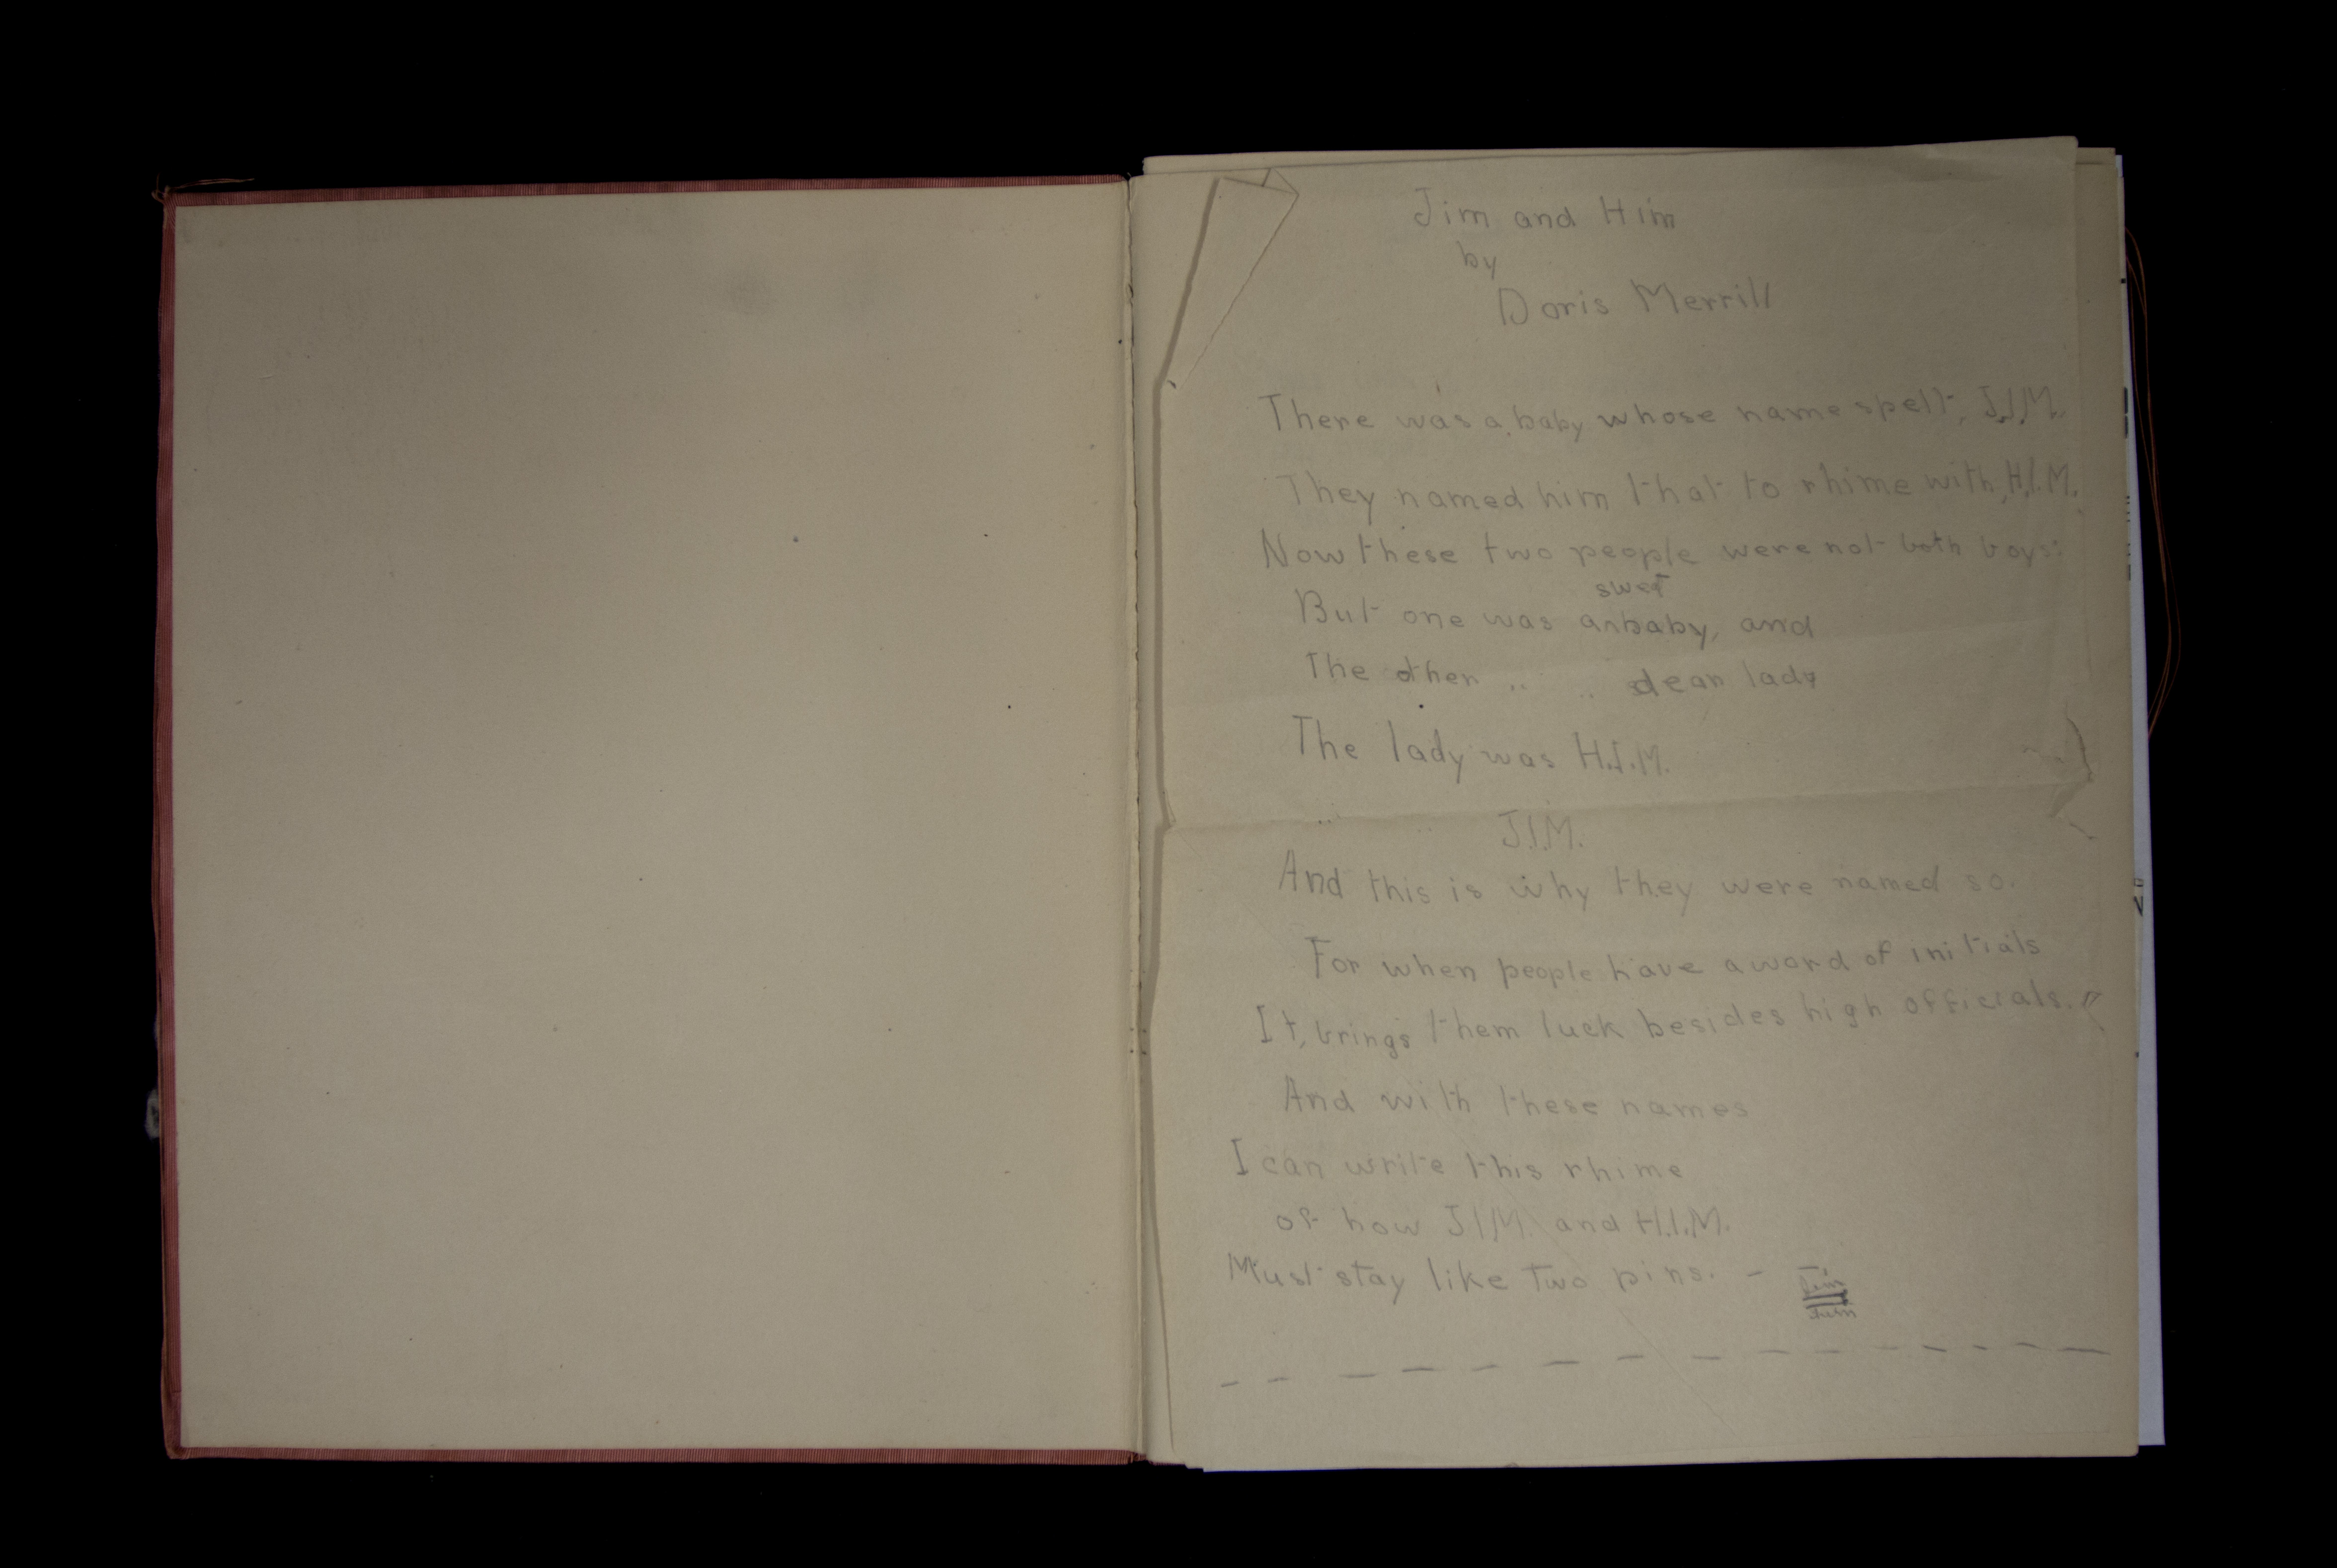 Jim and Him
by
Doris Merrill
There was a baby whose name spelt, J.I.M.
They named him that to rhime with, H.I.M.
Now these two people were not both boys:
swet
But one was a^baby, and
The other .. .. dear lady
The lady was H.I.M.
.. .. J.I.M.
And this is why they were named so.
For when people have a word of initials
It, brings them luck besides high officials.
And with these names
I can write this rhime
of how J.I.M. and H.I.M.
Must stay like two pins. -